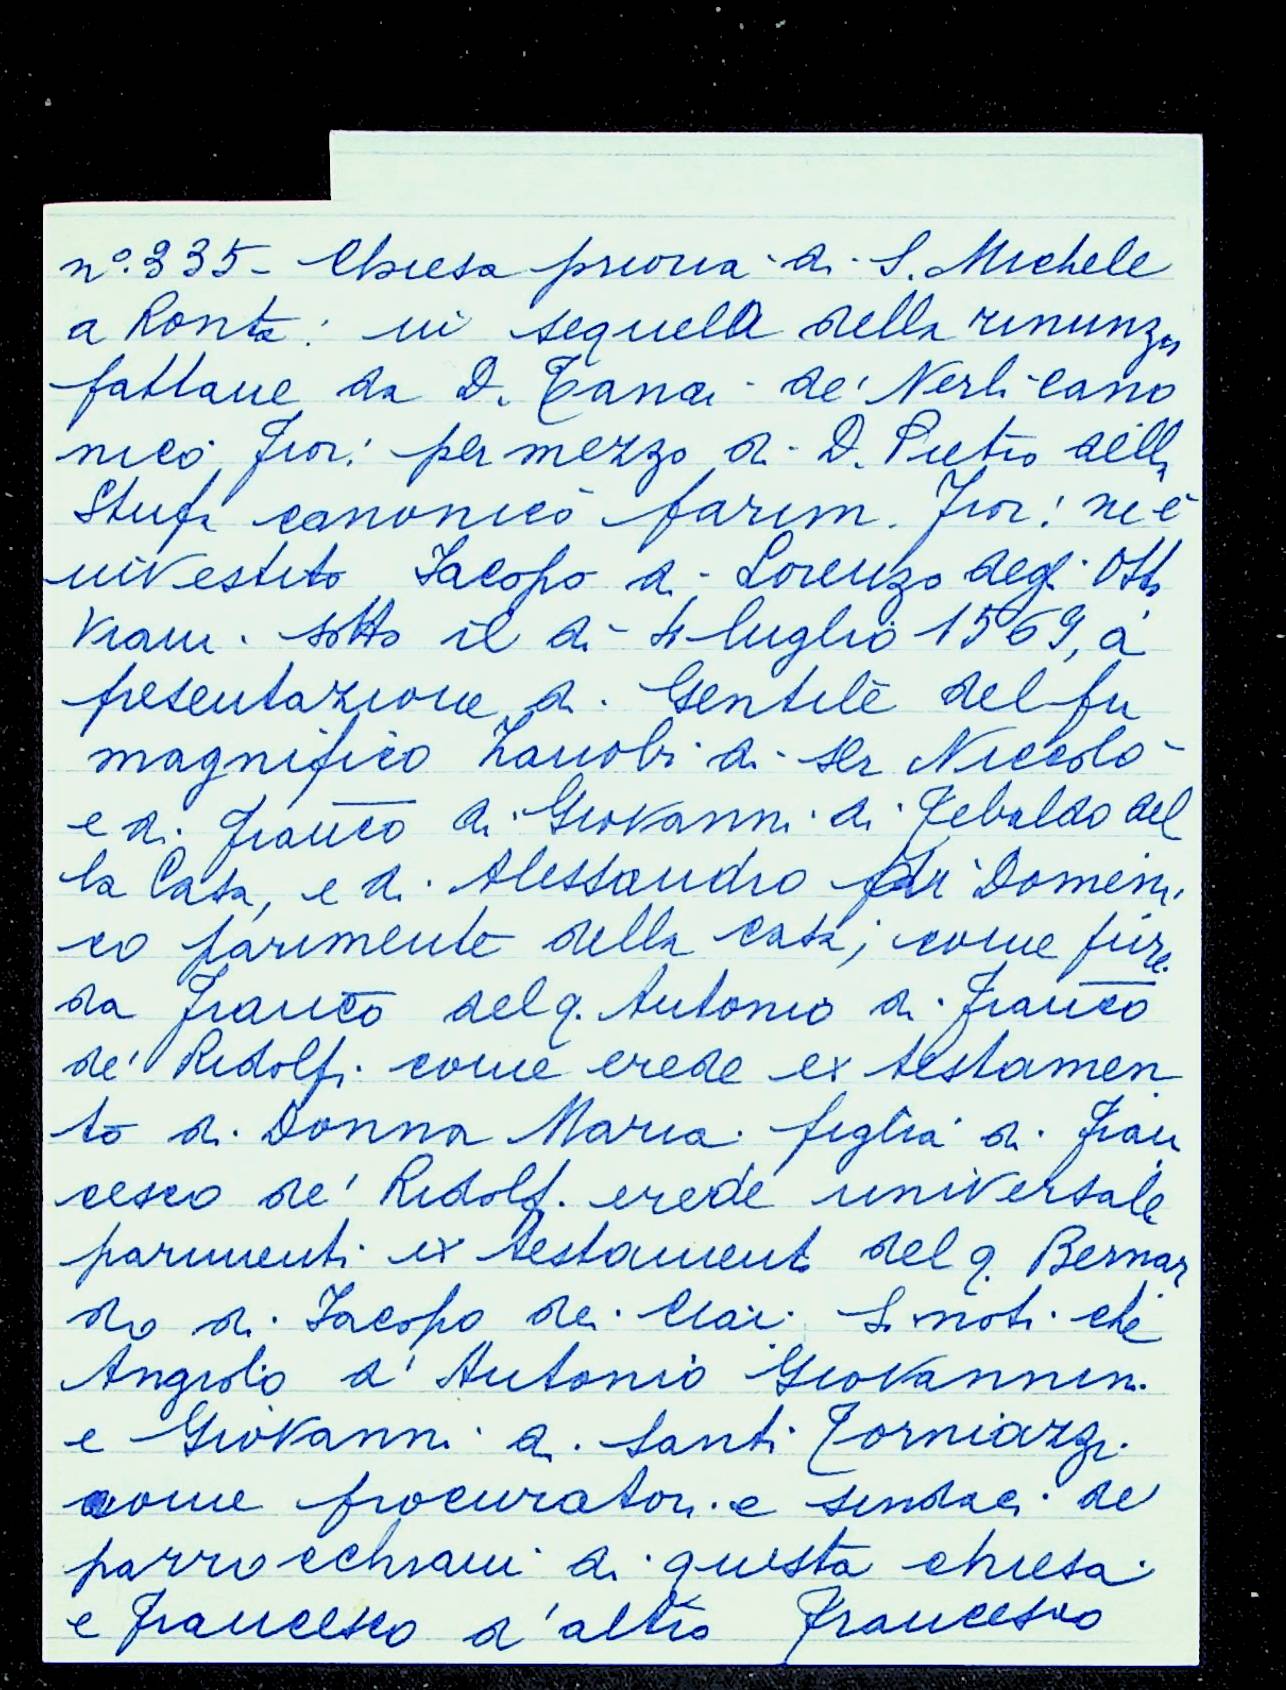 n.° 335 - Chiesa prioria di S. Michele
a Ronta: in sequela della rinunzia
fattane da D. Tanai de' Nerli cano
nico fior: per mezzo di D. Pietro della
Stufa canonico parim. fior: ne è
investito Jacopo di Lorenzo degli Otta
viani sotto il di 4 luglio 1569, a
presentazione di Gentile del fu
magnifico Zanobi di ser Niccolò
e di Franco di Giovanni di Tebaldo del
la Casa, e di Alessandro di Domeni
co parimente della casa; come pure
da Franco del q. Antonio di Franco
de' Ridolfi come erede ex testamen
to di Donna Maria figlia di Fran
cesco de' Ridolfi erede universale
parimenti ex testamento del q. Bernar
do di Jacopo dei Ciai. Si noti che
Angiolo d' Antonio Giovannini
e Giovanni di Santi Torniazzi
come procuratori e sindaci de'
parrocchiani di questa chiesa
e Francesco d'altro Francesco